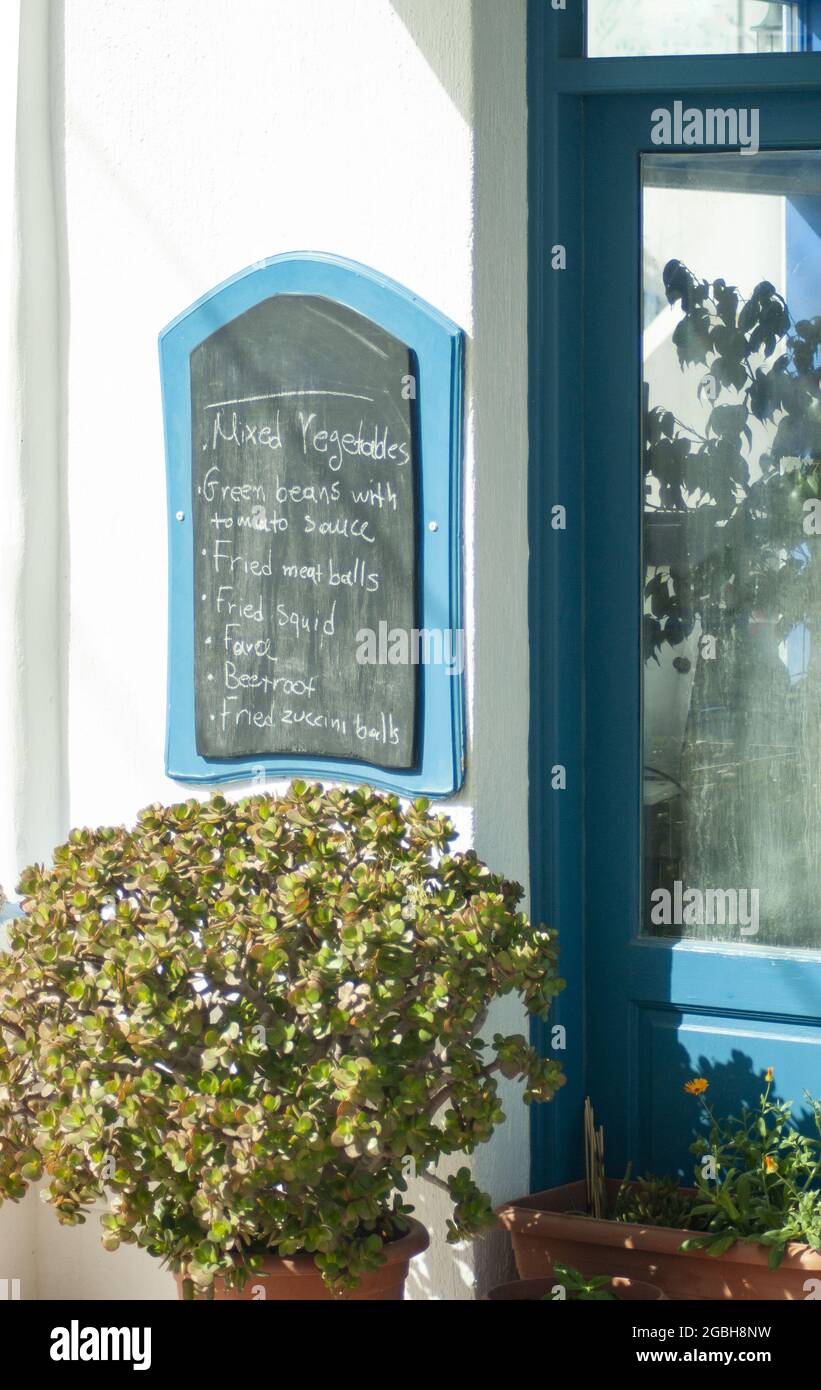 • Mixed Vegetables
• Green beans with
tomato sauce
• Fried meat balls
• Fried squid
• Fava
• Beetroot
• Fried zuccini balls
alamy
alamy
Image ID: 2GBH8NW
www.alamy.com